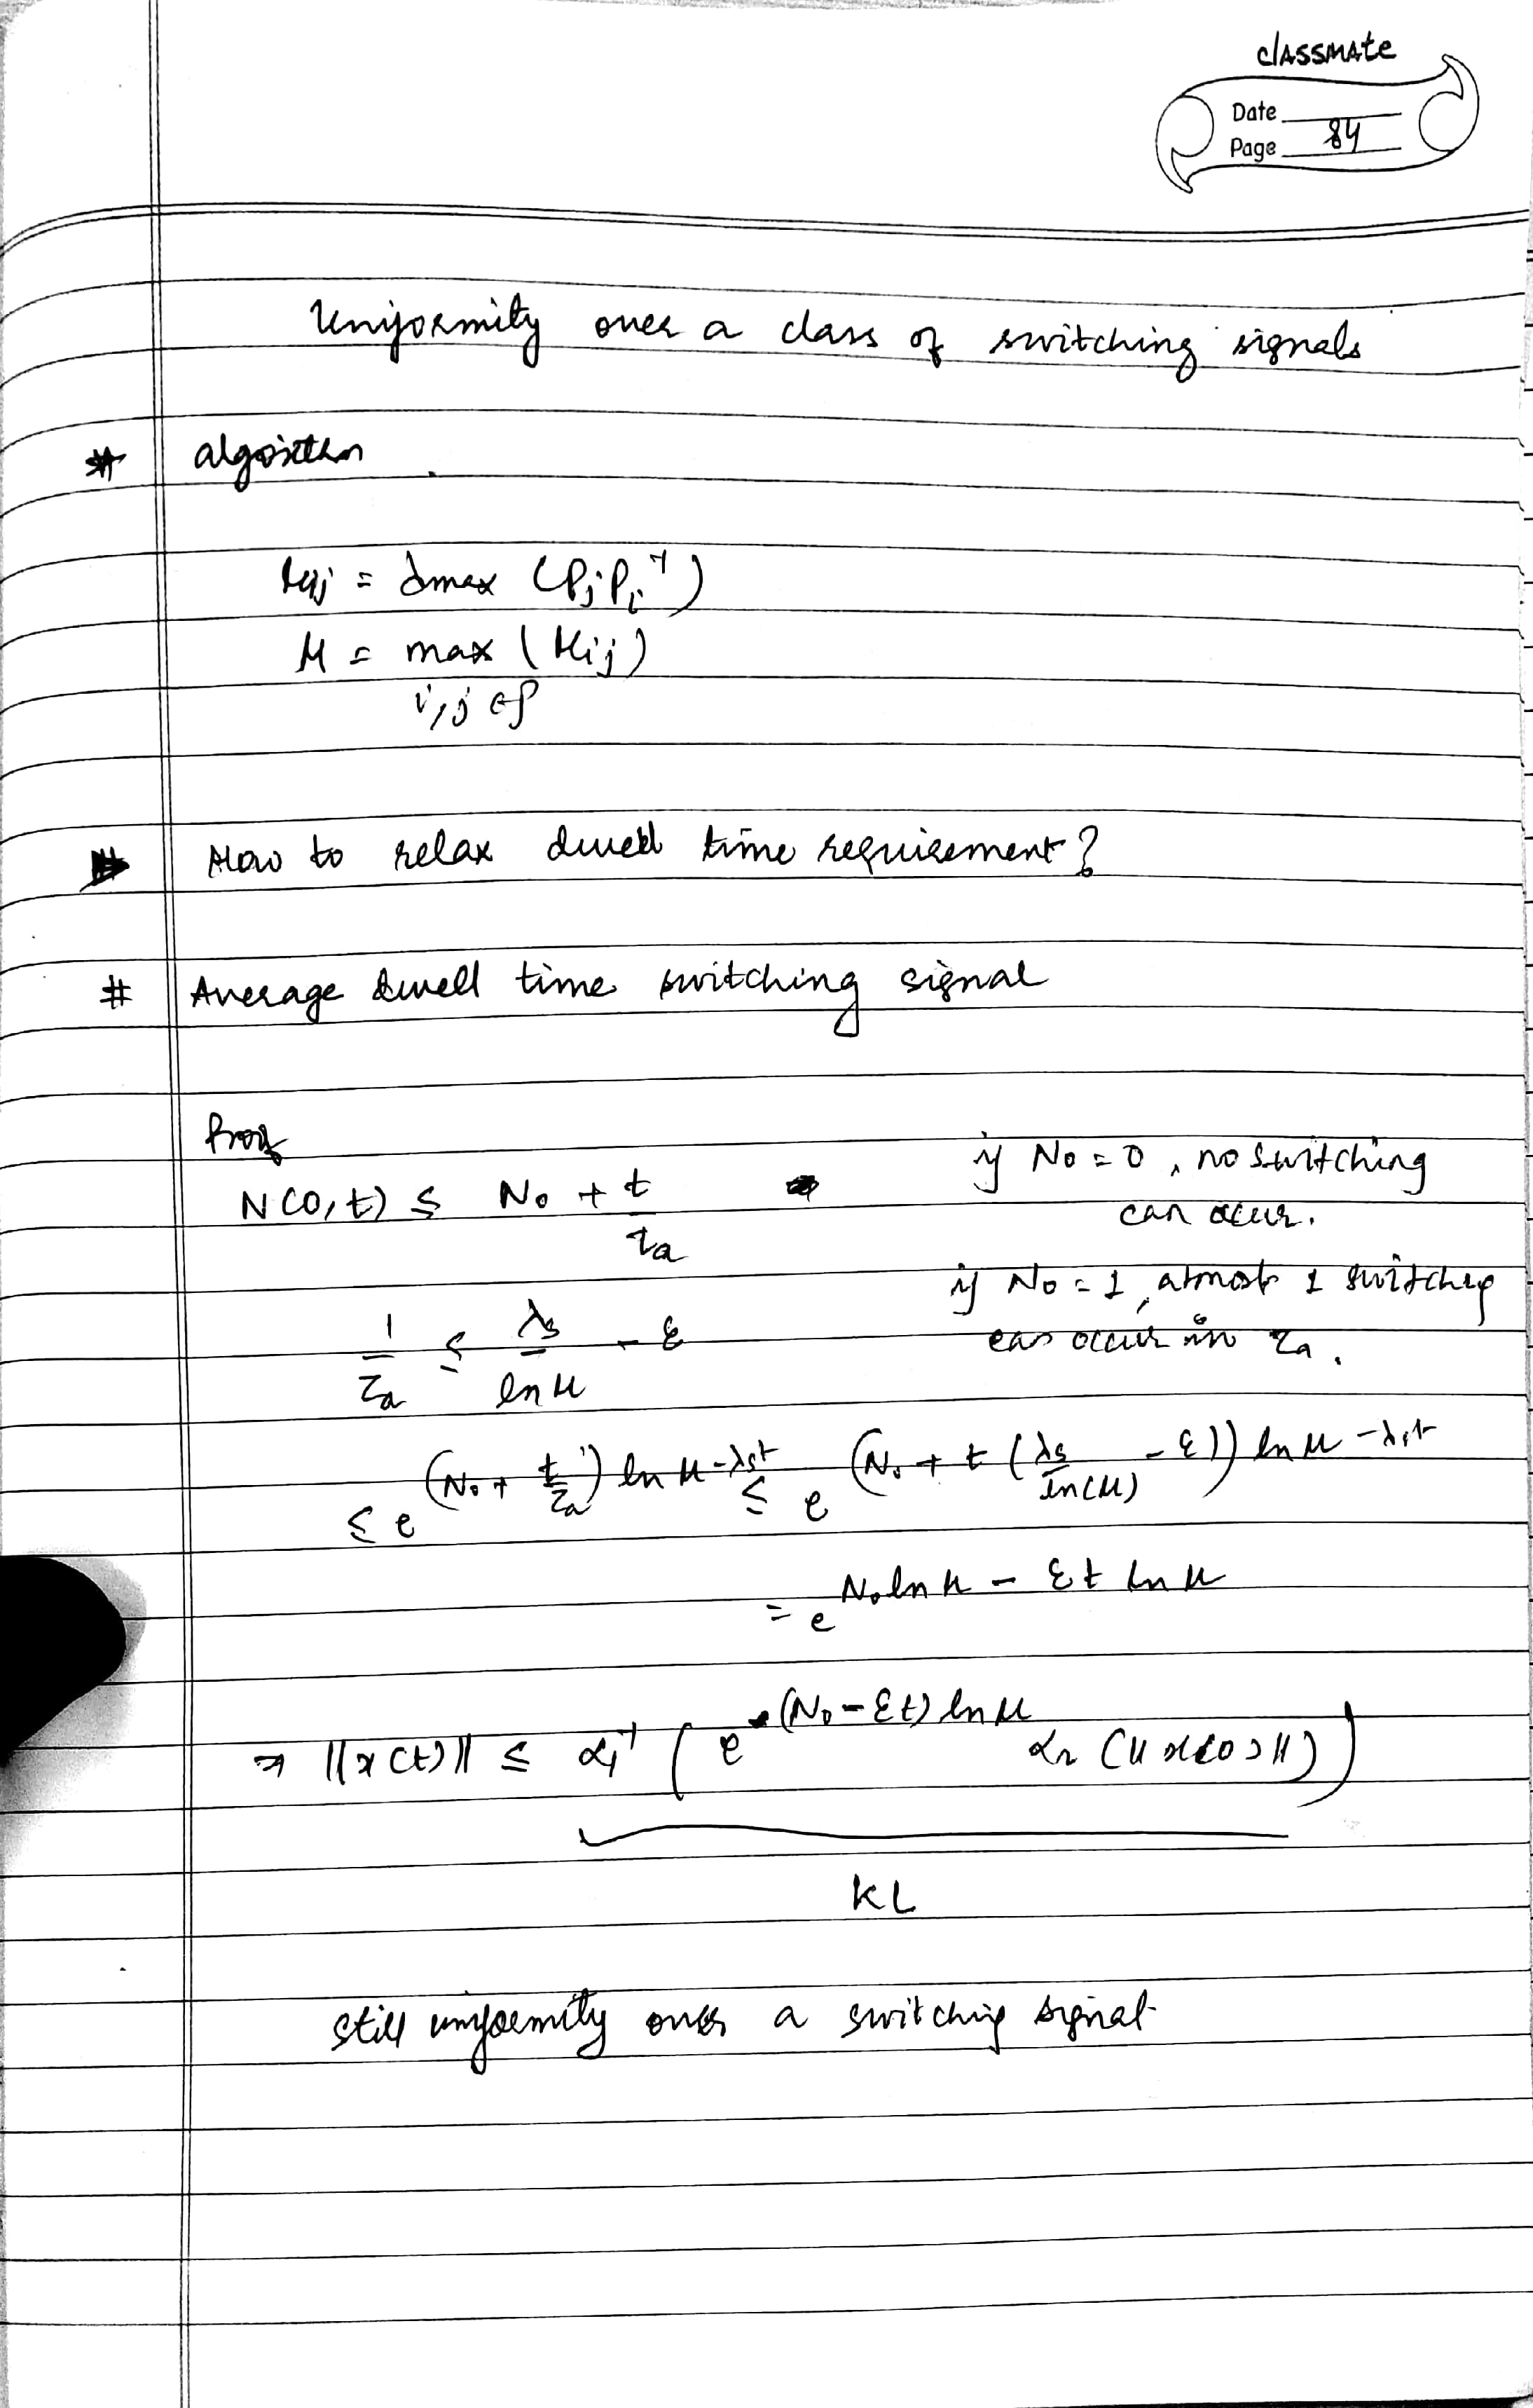 classmate
Date
Page 84
Uniformity over a class of switching signals
# algorithm
μij = λmax (PjPi⁻¹)
μ = max (μij)
i,j ∈ P
# How to relax dwell time requirement?
# Average dwell time switching signal
Proof
N(0,t) ≤ N₀ + t/τa
if N₀ = 0, no switching
can occur.
if N₀ = 1, atmost 1 switching
can occur in τa.
1/τa ≤ λs/ln μ - ε
≤ e^((N₀ + t/τa) ln μ - λst) ≤ e^((N₀ + t(λs/ln(μ) - ε)) ln μ - λst)
= e^(N₀ ln μ - εt ln μ)
⇒ ||x(t)|| ≤ α₁⁻¹ ( e^((N₀ - εt) ln μ) α₂ (||x(0)||) )
KL
still uniformity over a switching signal